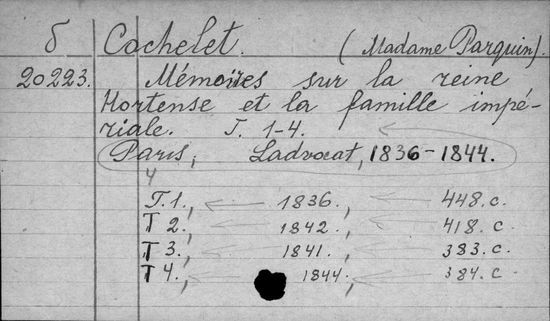 δ Cochelet. (Madame Parquin).
20223. Mémoires sur la reine
Hortense et la famille impé-
riale. T. 1-4.
Paris, Ladvocat, 1836-1844.
4
T. 1., 1836., 448. c.
T 2., 1842., 418. c.
T 3., 1841., 383. c.
T 4., 1844., 384. c.